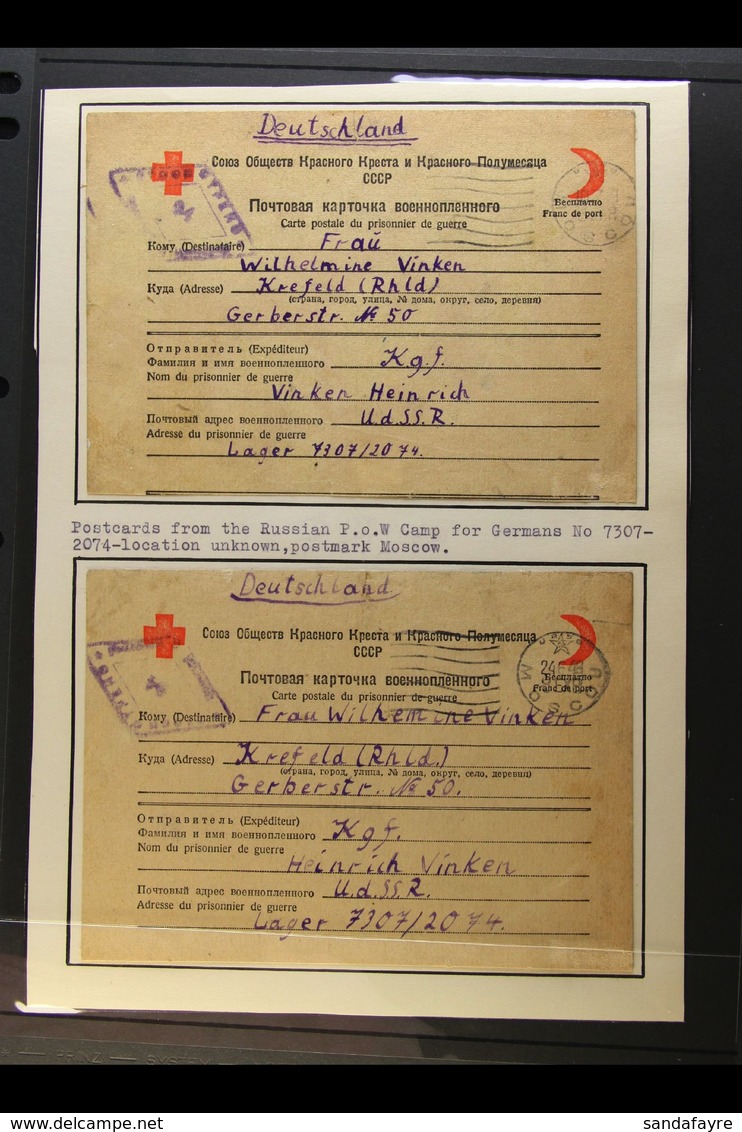 Deutschland
Союз Обществ Красного Креста и Красного Полумесяца
СССР
Почтовая карточка военнопленного
Carte postale du prisonnier de guerre
Бесплатно
Franc de port
24
Кому (Destinataire) Frau
Wilhelmine Vinken
Куда (Adresse) Krefeld (Rhld)
(страна, город, улица, № дома, округ, село, деревня)
Gerberstr. № 50
Отправитель (Expéditeur)
Фамилия и имя военнопленного Kgf.
Nom du prisonnier de guerre
Vinken Heinrich
Почтовый адрес военнопленного U.d.SS.R.
Adresse du prisonnier de guerre
Lager 7307/2074.
Postcards from the Russian P.o.W Camp for Germans No 7307-
2074-location unknown,postmark Moscow.
Deutschland
Союз Обществ Красного Креста и Красного Полумесяца
СССР
Почтовая карточка военнопленного
Carte postale du prisonnier de guerre
Бесплатно
Franc de port
MOSCOU
Кому (Destinataire) Frau Wilhemine Vinken
Куда (Adresse) Krefeld (Rhld.)
(страна, город, улица, № дома, округ, село, деревня)
Gerberstr. № 50.
Отправитель (Expéditeur)
Фамилия и имя военнопленного Kgf.
Nom du prisonnier de guerre
Heinrich Vinken
Почтовый адрес военнопленного U.d.SS.R.
Adresse du prisonnier de guerre
Lager 7307/2074.
PRINZ — SYSTEM
delcampe.net
sandafayre